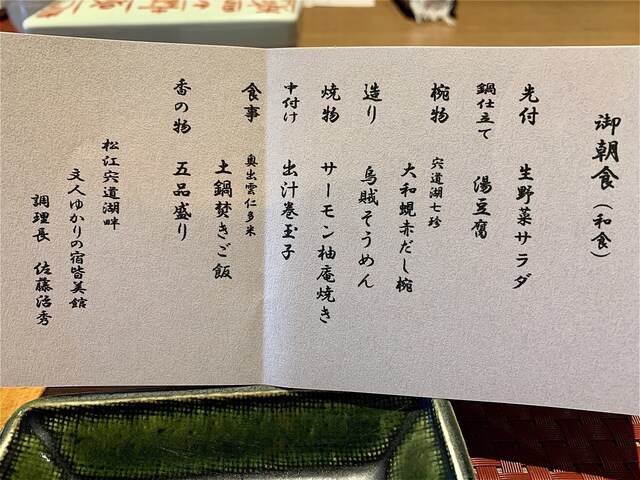 御朝食(和食)
先付 生野菜サラダ
鍋仕立て 湯豆腐
椀物 宍道湖七珍
大和蜆赤だし椀
造り 烏賊そうめん
焼物 サーモン柚庵焼き
中付け 出汁巻玉子
食事 奥出雲仁多米
土鍋焚きご飯
香の物 五品盛り
松江宍道湖畔
文人ゆかりの宿皆美館
調理長 佐藤浩秀